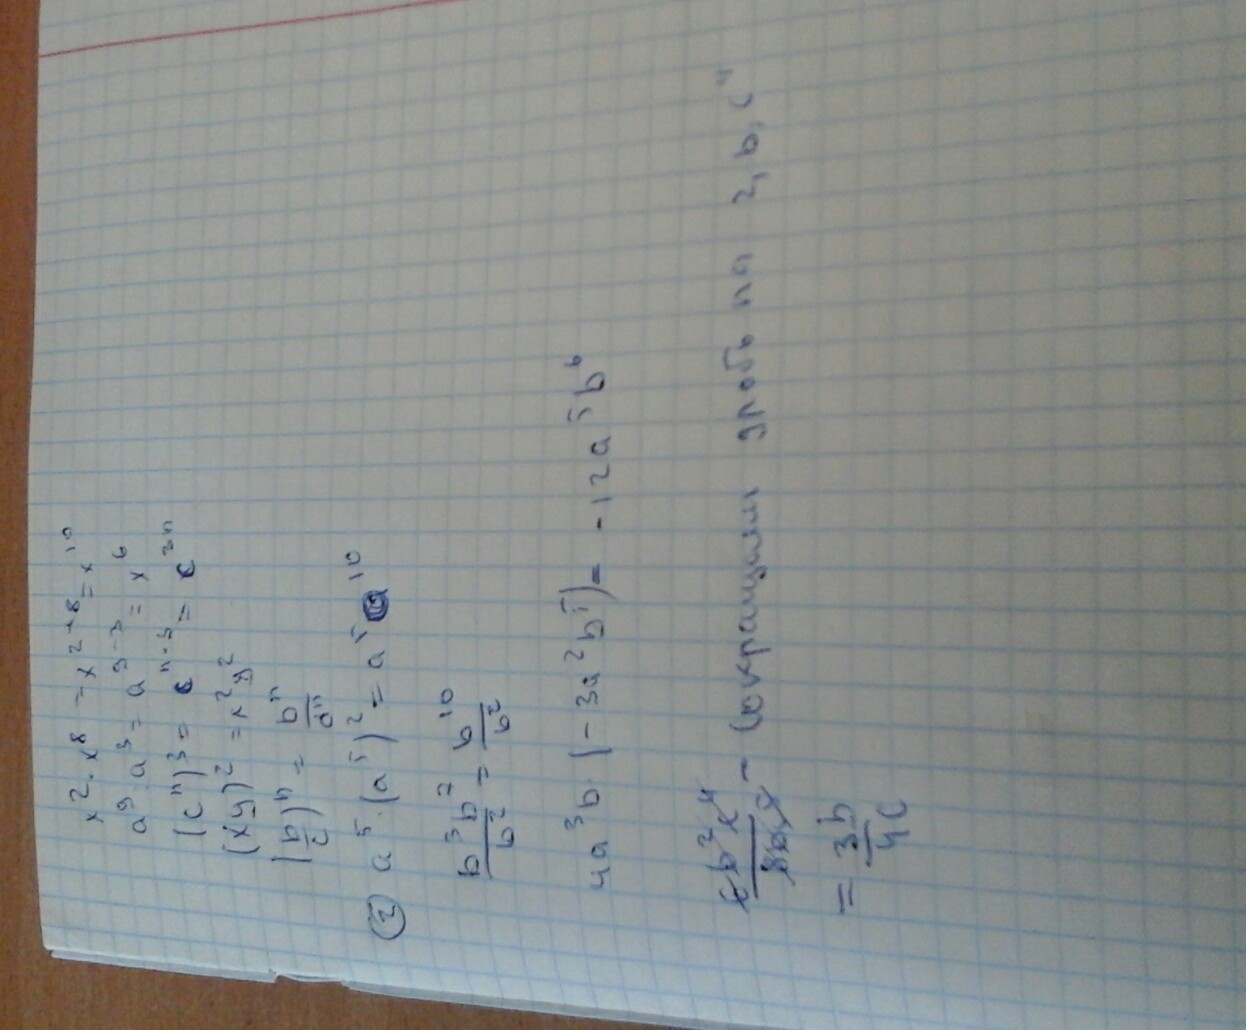 x² · x⁸ = x²⁺⁸ = x¹⁰
a⁹ : a³ = a⁹⁻³ = x⁶
(cⁿ)³ = cⁿ·³ = c³ⁿ
(xy)² = x²y²
(b/c)ⁿ = bⁿ/cⁿ
② a⁵ · (a⁵)² = a⁵ 10
b³b⁷/b² = b¹⁰/b²
4a³b · (-3a²b⁵) = -12a⁵b⁶
6b²c⁴/8bc⁵ - Сокращаем дробь на 2, b, c⁴
= 3b/4c